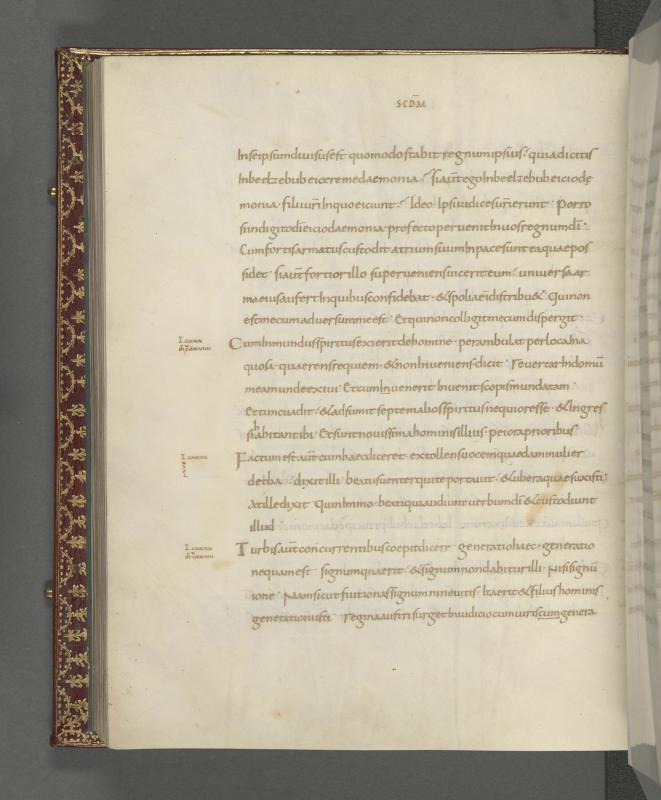 SCDM
Inseipsumdiuisusest quomodostabit regnumipsius · quiadicitis
Inbeelzebub eiceremedaemonia · Siautegoinbeelzebubeiciodę
monia · filiuriInquoeiciunt · Ideo Ipsiiudicesurierunt · Porro
siindigitodieiciodaemonia · profectopervenitInuosregnumdi ·
Cumfortisarmatuscustodit atriumsuumInpacesunteaquaepos
sidet · siautfortiorillo superueniensuicerit eum · uniuersaar
maeiusaufertInquibusconfidebat · &spoliaeiusdistribu& · Quinon
estmecumaduersummeest · Etquinoncolligitmecumdispergit ·
CumInmundusspiritusexieritdehomine · perambulat perlocaIna
quosa · quaerensrequiem · &nonInueniensdicit · reuertarIndomu
meamundeexiui · EtcumInuenerit Inuenitscopismundatam ·
Etuncuadit · &adsumit septemaliosspiritusnequioresse · &Ingres
sihabitantibi · Etfiuntnouissimahominisillius · peioraprioribus
Factumest aut cumhaecdiceret · extollensuocemquaedammulier
deturba · dixitilli · beatusuenterquiteportauit · &uberaquaesuxisti
atilledixit · Quinimmo · beatiquiaudiuntuerbumdi &custodiunt
illud
Turbisautconcurrentibuscoepitdicere · generatiohaec · generatio
nequamest · signumquaerit · &signumnondabiturilli · Nisisignu
ione · Namsicut fuitionassignumnineuitis · Itaerit&filiushominis
generationiisti · reginaaustrisurgetIniudiciocumuiriscumgenera